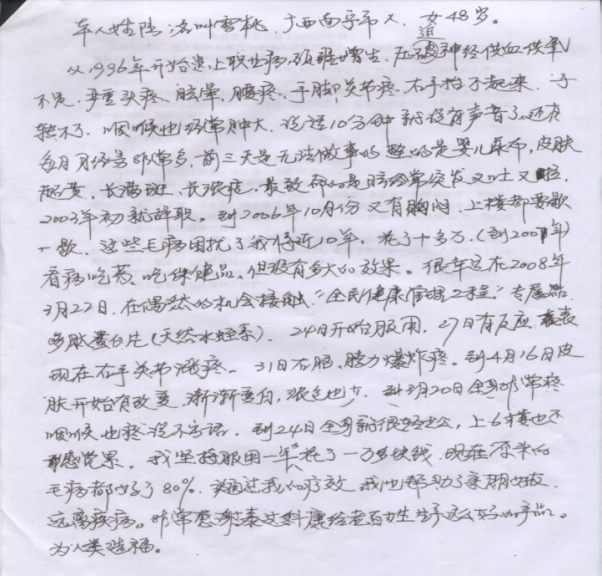 本人姓陆 名叫雪桃、广西南宁市人、女48岁。
从1996年开始患上职业病,颈椎增生,压迫神经供血供氧
不足,严重头疼 眩晕,腰疼、手脚关节疼、右手抬不起来、子
转不了、咽喉也经常肿大,说话10分钟就没有声音了。还有
每月月经量非常多,前三天是无法做事的 垫的是婴儿尿布,皮肤
起黄、长满斑、长浓疮,最致命的是 经常突发又吐又
2003年初就辞职。到2006年10月份又有胸闷、上楼都要歇
一歇,这些毛病困扰了我将近10年,花了十多万,(到2007年)
看病吃药、吃保健品,但没有多大的效果。很幸运在2008年
3月22日,在偶然的机会接触“全民健康管理工程”专属
多肽蛋白片(天然水蛭素),24日开始服用,27日有反应,表
现在右手关节涨疼、31日右脑,脑力爆炸疼。到4月16日皮
肤开始有改变,渐渐变白,斑也少,到5月20日全身非常疼
咽喉也疼说不出话,到24日全身就很轻松,上6楼也不
感觉累,我坚持服用一年花了一万多块钱,现在原来的
毛病都好了80%,通过我的疗效 我也帮助了亲朋好友,
远离疾病。非常感谢泰达科康给老百姓生产这么好的产品。
为人类造福。